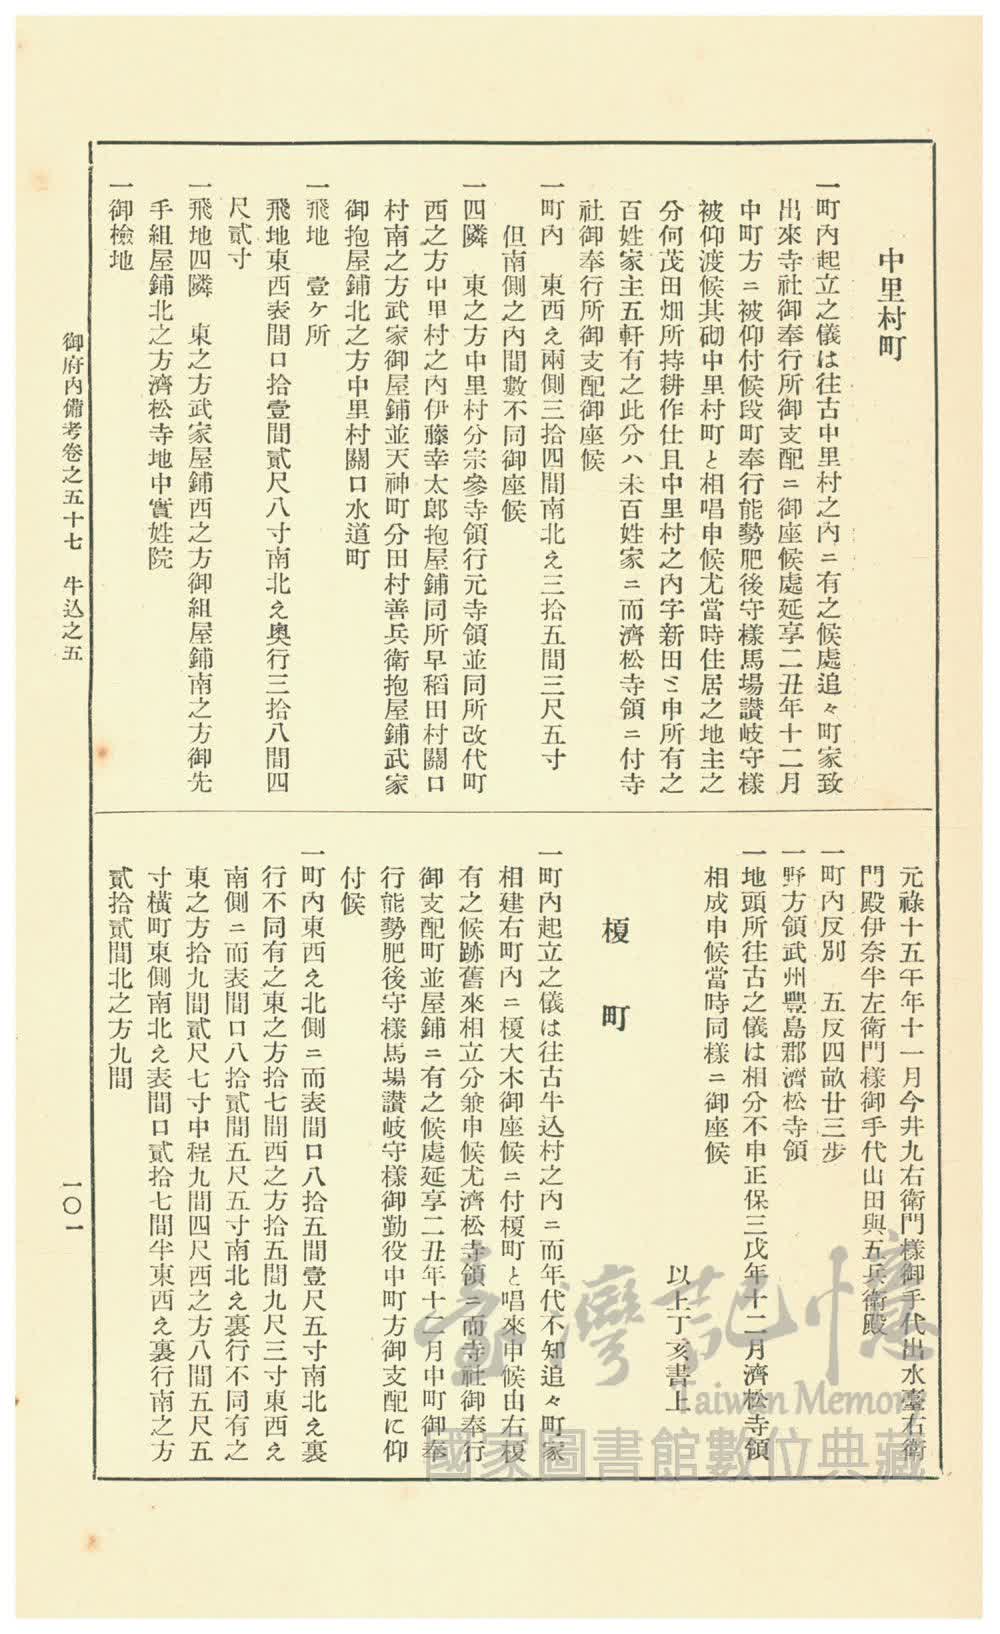 中里村町
一町內起立之儀は往古中里村之內ニ有之候處追々町家致
出來寺社御奉行所御支配ニ御座候處延享二丑年十二月
中町方ニ被仰付候段町奉行能勢肥後守樣馬場讃岐守樣
被仰渡候其砌中里村町と相唱申候尤當時住居之地主之
分何茂田畑所持耕作仕且中里村之內字新田ミ申所有之
百姓家主五軒有之此分ハ未百姓家ニ而濟松寺領ニ付寺
社御奉行所御支配御座候
一町內　東西え兩側三拾四間南北え三拾五間三尺五寸
但南側之內間數不同御座候
一四隣　東之方中里村分宗參寺領行元寺領並同所改代町
西之方中里村之內伊藤幸太郞抱屋鋪同所早稻田村關口
村南之方武家御屋鋪並天神町分田村善兵衛抱屋鋪武家
御抱屋鋪北之方中里村關口水道町
一飛地　壹ケ所
飛地東西表間口拾壹間貳尺八寸南北え奧行三拾八間四
尺貳寸
一飛地四隣　東之方武家屋鋪西之方御組屋鋪南之方御先
手組屋鋪北之方濟松寺地中實姓院
一御檢地
元祿十五午年十一月今井九右衛門樣御手代出水臺右衛
門殿伊奈半左衛門樣御手代山田與五兵衛殿
一町內反別　五反四畝廿三步
一野方領武州豐島郡濟松寺領
一地頭所往古之儀は相分不申正保三戊年十二月濟松寺領
相成申候當時同樣ニ御座候
以上丁亥書上
榎町
一町內起立之儀は往古牛込村之內ニ而年代不知追々町家
相建右町內ニ榎大木御座候ニ付榎町と唱來申候由右榎
有之候跡舊來相立分兼申候尤濟松寺領ニ而寺社御奉行
御支配町並屋鋪ニ有之候處延享二丑年十二月中町御奉
行能勢肥後守樣馬場讃岐守樣御勤役中町方御支配に仰
付候
一町內東西え北側ニ而表間口八拾五間壹尺五寸南北え裏
行不同有之東之方拾七間西之方拾五間九尺三寸東西え
南側ニ而表間口八拾貳間五尺五寸南北え裏行不同有之
東之方拾九間貳尺七寸中程九間四尺西之方八間五尺五
寸橫町東側南北え表間口貳拾七間半東西え裏行南之方
貳拾貳間北之方九間
御府內備考卷之五十七　牛込之五
一〇一
臺灣記憶
Taiwan Memory
國家圖書館數位典藏